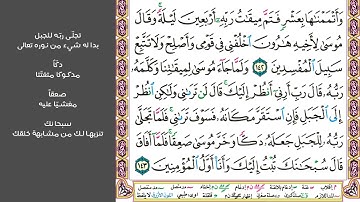 وَأَتْمَمْنَٰهَا بِعَشْرٍ فَتَمَّ مِيقَٰتُ رَبِّهِۦٓ أَرْبَعِينَ لَيْلَةً ۚ وَقَالَ
مُوسَىٰ لِأَخِيهِ هَٰرُونَ ٱخْلُفْنِى فِى قَوْمِى وَأَصْلِحْ وَلَا تَتَّبِعْ
سَبِيلَ ٱلْمُفْسِدِينَ ١٤٢ وَلَمَّا جَآءَ مُوسَىٰ لِمِيقَٰتِنَا وَكَلَّمَهُۥ
رَبُّهُۥ قَالَ رَبِّ أَرِنِىٓ أَنظُرْ إِلَيْكَ ۚ قَالَ لَن تَرَىٰنِى وَلَٰكِنِ ٱنظُرْ
إِلَى ٱلْجَبَلِ فَإِنِ ٱسْتَقَرَّ مَكَانَهُۥ فَسَوْفَ تَرَىٰنِى ۚ فَلَمَّا تَجَلَّىٰ
رَبُّهُۥ لِلْجَبَلِ جَعَلَهُۥ دَكًّا وَخَرَّ مُوسَىٰ صَعِقًا ۚ فَلَمَّآ أَفَاقَ
قَالَ سُبْحَٰنَكَ تُبْتُ إِلَيْكَ وَأَنَا۠ أَوَّلُ ٱلْمُؤْمِنِينَ ١٤٣
تجلّى ربّه للجبل
بدا له شيء من نوره تعالى
دكّاً
مدكوكا مفتتا
صعقاً
مغشيا عليه
سبحانك
تنزيها لك من مشابهة خلقك